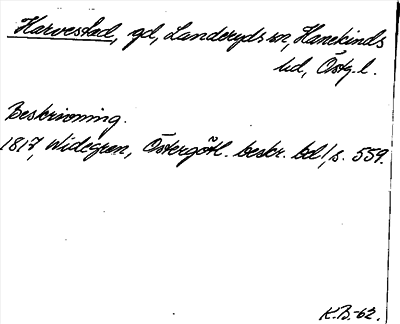 Harvestad, gd, Landeryds sn, Hanekinds
hd, Östg. l.
Beskrivning.
1817, Widegren, Östergötl. beskr. bd 1, s. 559.
K.B.-62.